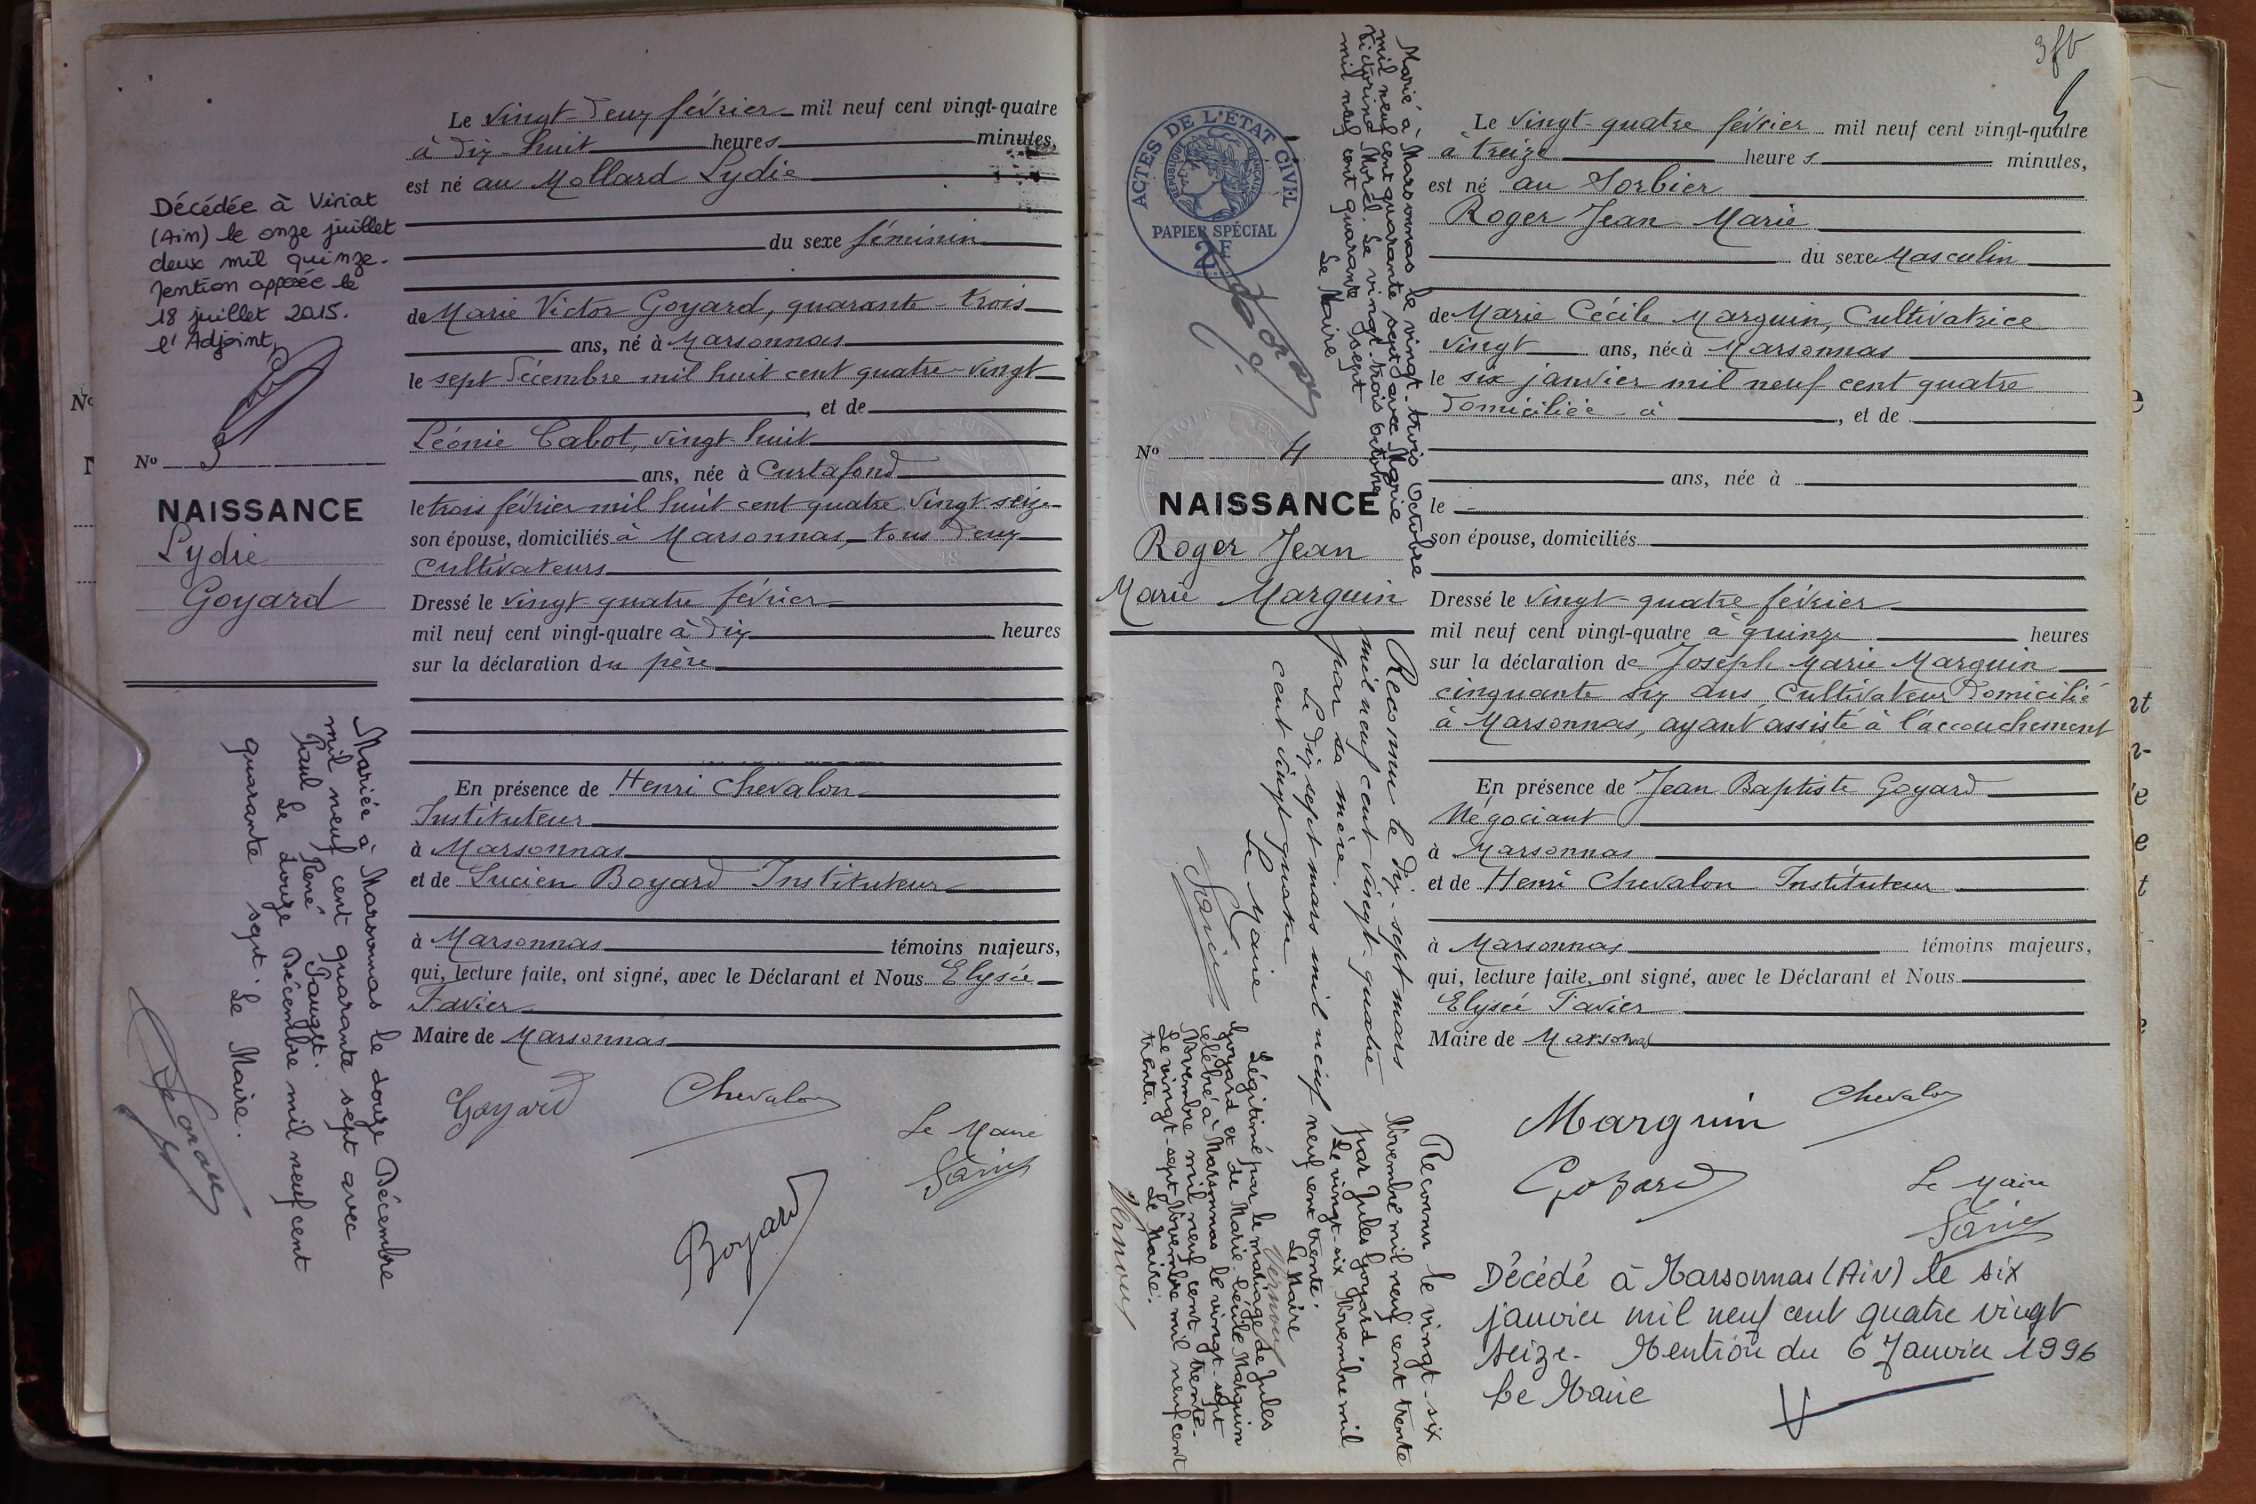 Le vingt-deux février mil neuf cent vingt-quatre
à dix-huit heures minutes,
est né au Mollard Lydie
du sexe féminin
de Marie Victor Goyard, quarante-trois
ans, né à Marsonnas
le sept décembre mil huit cent quatre-vingt
, et de
Léonie Cabot, vingt-huit
ans, née à Curtafond
le trois février mil huit cent quatre vingt seize
son épouse, domiciliés à Marsonnas, tous deux
cultivateurs
Dressé le vingt-quatre février
mil neuf cent vingt-quatre à dix heures
sur la déclaration du père
En présence de Henri Chevalon
Instituteur
à Marsonnas
et de Lucien Boyard Instituteur
à Marsonnas témoins majeurs,
qui, lecture faite, ont signé, avec le Déclarant et Nous Elysée
Favier
Maire de Marsonnas
Goyard
Chevalon
Le Maire
Favier
Boyard
Décédée à Viriat
(Ain) le onze juillet
deux mil quinze.
Mention apposée le
18 juillet 2015.
l'Adjoint,
No 3
NAISSANCE
Lydie
Goyard
Mariée à Marsonnas le douze Décembre
mil neuf cent quarante sept avec
Paul René Pauget.
Le douze Décembre mil neuf cent
quarante sept. Le Maire.
3
Le vingt-quatre février mil neuf cent vingt-quatre
à treize heures minutes,
est né au Sorbier
Roger Jean Marie
du sexe Masculin
de Marie Cécile Marguin, Cultivatrice
vingt ans, née à Marsonnas
le six janvier mil neuf cent quatre
domiciliée à , et de
ans, née à
le
son épouse, domiciliés
Dressé le vingt-quatre février
mil neuf cent vingt-quatre à quinze heures
sur la déclaration de Joseph Marie Marguin
cinquante six ans Cultivateur domicilié
à Marsonnas, ayant assisté à l'accouchement
En présence de Jean Baptiste Goyard
Négociant
à Marsonnas
et de Henri Chevalon Instituteur
à Marsonnas témoins majeurs,
qui, lecture faite, ont signé, avec le Déclarant et Nous
Elysée Favier
Maire de Marsonnas
Marguin
Chevalon
Goyard
Le Maire
Favier
Décédé à Marsonnas (Ain) le six
janvier mil neuf cent quatre vingt
seize. Mention du 6 Janvier 1996
Le Maire
ACTES DE L'ÉTAT CIVIL
RÉPUBLIQUE FRANÇAISE
PAPIER SPÉCIAL
2F
No 4
NAISSANCE
Roger Jean
Marie Marguin
Marié à Marsonnas le vingt-trois Octobre
mil neuf cent quarante sept avec Marie
Victorine Morel. Le vingt-trois Octobre
mil neuf cent quarante sept
Le Maire
Reconnu le dix-sept mars
mil neuf cent vingt-quatre
par sa mère.
Le dix sept mars mil neuf
cent vingt quatre
Le Maire
Favier
Reconnu le vingt-six
Novembre mil neuf cent trente
par Jules Goyard.
Le vingt-six Novembre mil
neuf cent trente.
Le Maire
Vernoux
Légitimé par le mariage de Jules
Goyard et de Marie Cécile Marguin
célébré à Marsonnas le vingt-sept
Novembre mil neuf cent trente.
Le vingt-sept Novembre mil neuf cent
trente.
Le Maire.
Vernoux